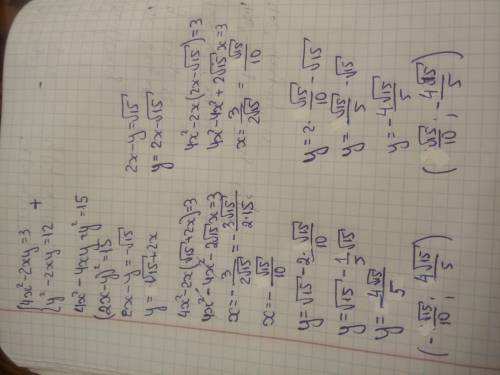 {4x²-2xy=3
{y²-2xy=12 +
4x²-4xy+y²=15
(2x-y)²=15
2x-y=-√15
y=√15+2x
4x²-2x(√15+2x)=3
4x²-4x²-2√15x=3
x=-3/(2√15)=-3√15/(2·15)
x=-√15/10
y=√15-2·√15/10
y=√15-1√15/5
y=-4√15/5
(-√15/10; 4√15/5)
2x-y=√15
y=2x-√15
4x²-2x(2x-√15)=3
4x²-4x²+2√15x=3
x=3/(2√15)=√15/10
y=2·√15/10-√15
y=√15/5-√15
y=-4√15/5
(√15/10; -4√15/5)